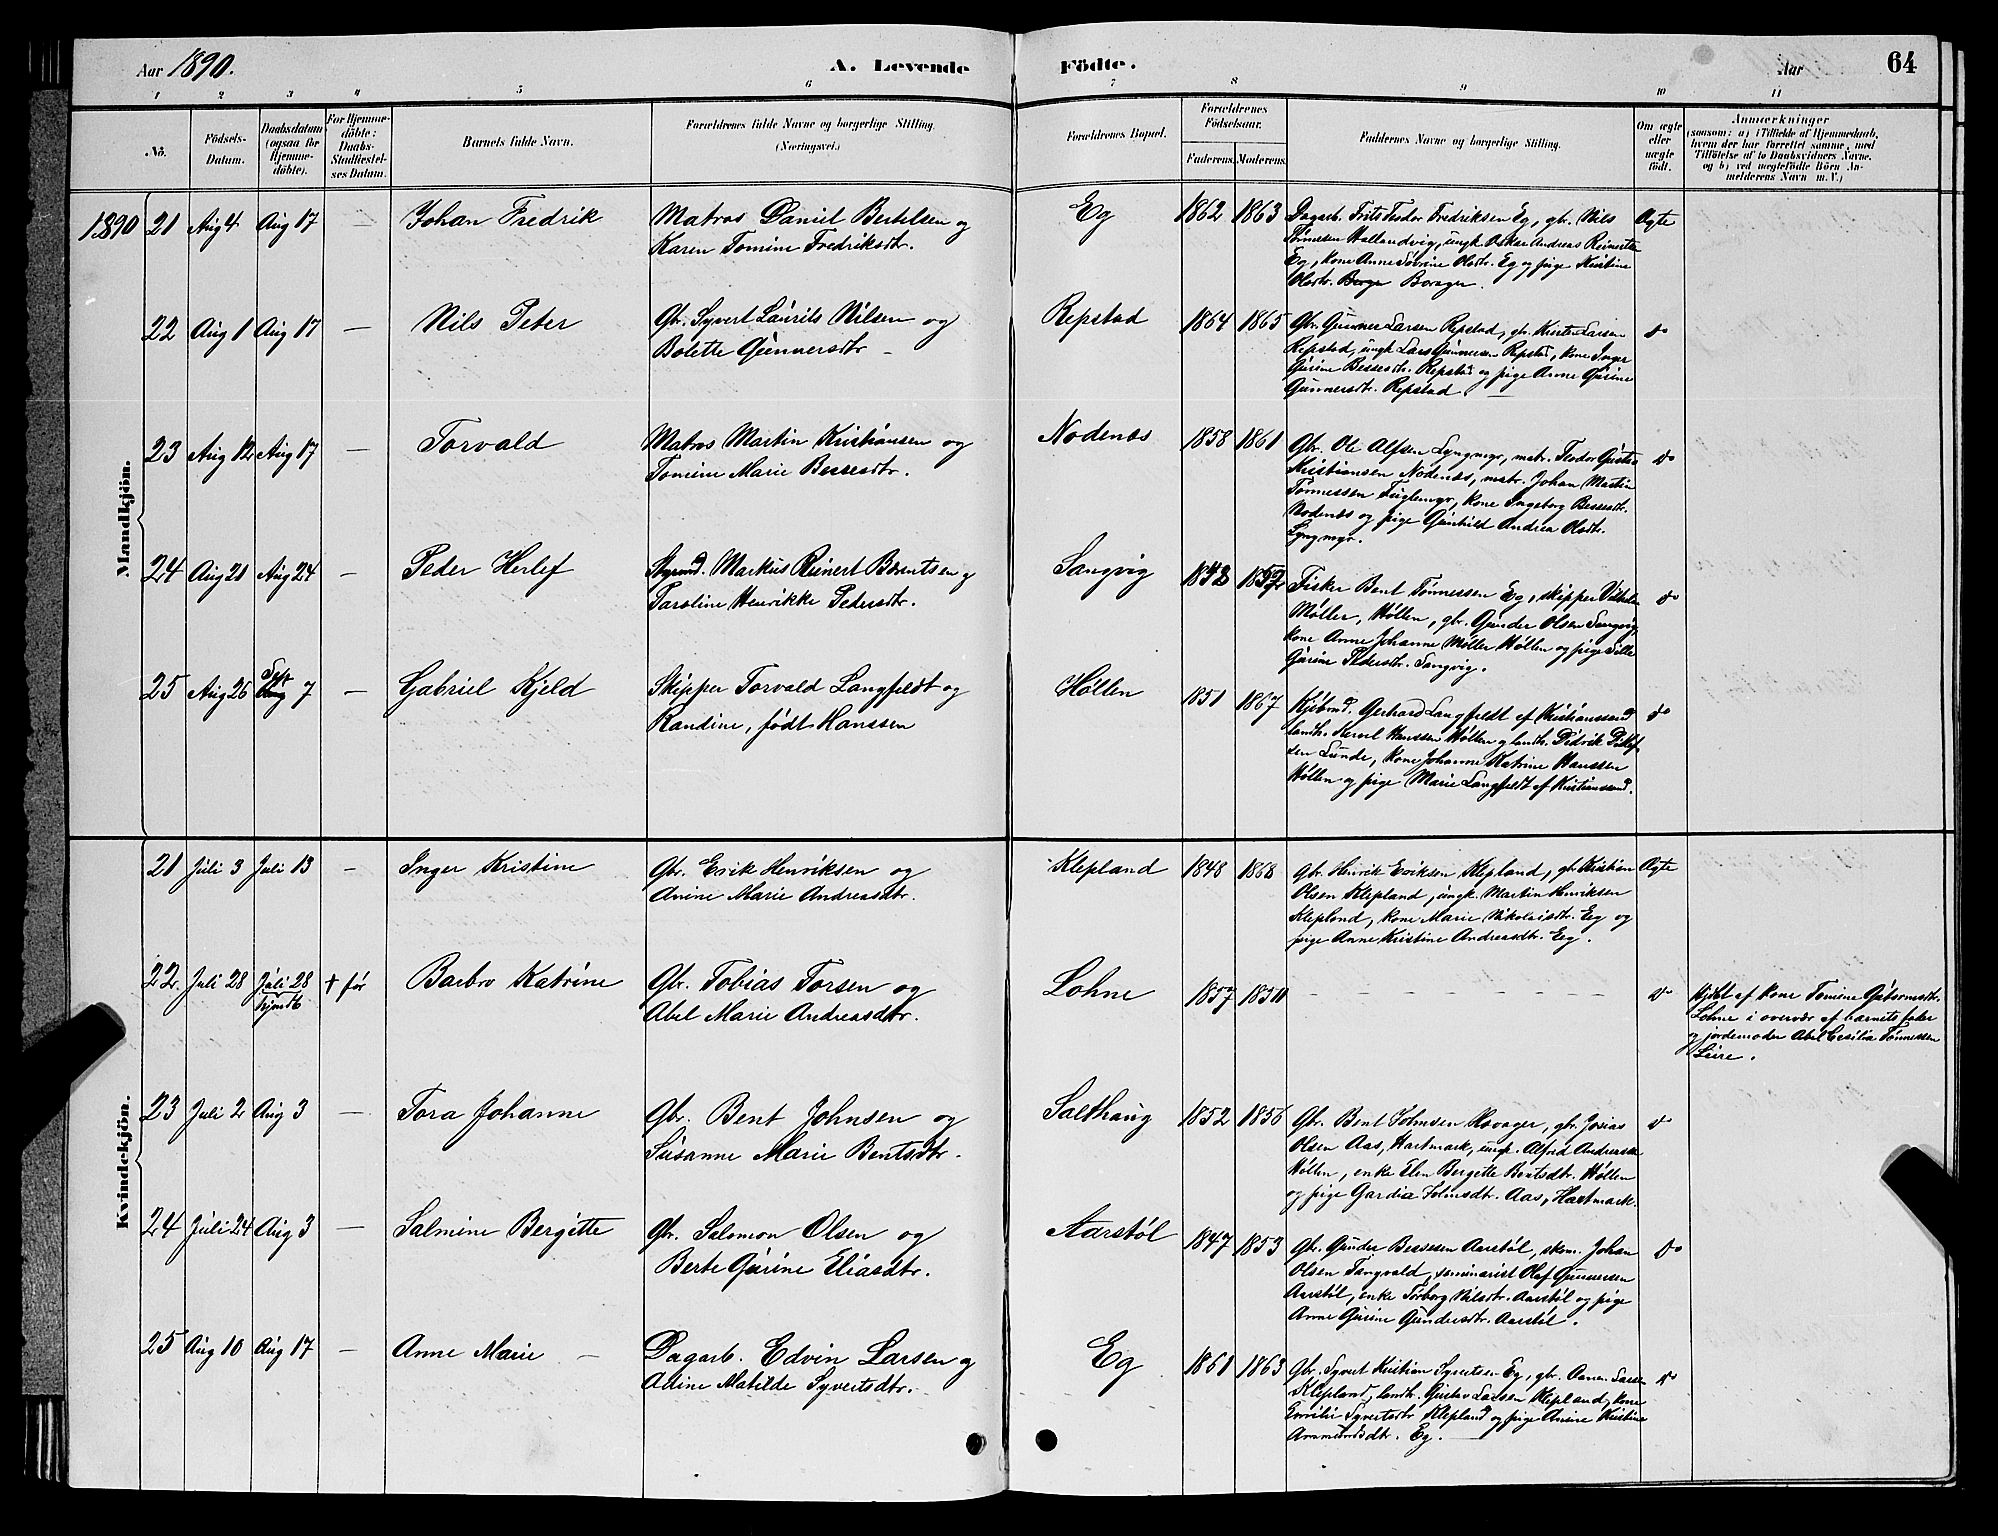 Aar 1890. A. Levende Födte. Aar 64
1 2 3 4 5 6 7 8 9 10 11
No. Födsels-Datum. Daabsdatum (ogsaa for Hjemmedöbte). For Hjemmedöbte: Daabs-Stadfæstelses Datum. Barnets fulde Navn. Forældrenes fulde Navne og borgerlige Stilling. (Næringsvei.) Forældrenes Bopæl. Forældrenes Födselsaar. Faderens. Moderens. Faddernes Navne og borgerlige Stilling. Om ægte eller uægte födt. Anmærkninger (saasom: a) i Tilfælde af Hjemmedaab, hvem der har forrettet samme, med Tilföielse af to Daabsvidners Navne, og b) ved uægtefödte Börn Anmelderens Navn m.V.)
Mandkjön.
1890 21 Aug 4 Aug 17 — Johan Fredrik
Matros Daniel Bertelsen og
Karen Tomine Fredriksdt.
Eg 1862 1863
Dagarb. Frits Teodor Fredriksen Eg, gbr. Nils
Tönnessen Hallandvig, ungk. Oskar Andreas Reinertsen
Eg, kone Anne Severine Olsdtr. Eg og pige Kristine
Olsdtr. Borgen.
Ægte
22 Aug 1 Aug 17 — Nils Peter
Gbr. Syvert Laurits Nilsen og
Bolette Gunnersdtr —
Repstad 1864 1865
Gbr. Gunner Larsen Repstad, gbr. Kristen Larsen
Repstad, ungk Lars Gunnersen Repstad, kone Inger
Gurine Bessesdtr. Repstad og pige Anne Gurine
Gunnersdtr. Repstad. —
do
23 Aug 12 Aug 17 — Torvald
Matros Martin Kristiansen og
Tomine Marie Bessesdtr.
Nodenæs 1858 1861
Gbr. Ole Alfsen Lyngmyr, matr. Teodor Gustav
Kristiansen Nodenæs, matr. Johan Martin
Tönnessen Fuglemyr, kone Ingeborg Bessesdtr.
Nodenæs og pige Gunhild Andrea Olsdtr.
Lyngmyr.
do
24 Aug 21 Aug 24 — Peder Herlef
Styrmd. Markus Reinert Berntsen og
Taroline Henrikke Pedersdtr.
Langvig 1848 1852
Fisker Bent Tönnessen Eg, skipper Vilhelm
Möller, Höllen, gbr. Gunder Olsen Langvig,
kone Anne Johanne Möller Höllen og pige Sille
Gurine Pedersdtr. Langvig.
do
25 Aug 26 Sept 7 — Gabriel Kjeld
Skipper Torvald Langfeldt og
Randine, födt Hanssen
Höllen 1851 1867
Kjöbmd. Gerhard Langfeldt af Kristianssand
landh. Hanssen Höllen og landh. Didrik
Lunde, kone Johanne Katrine Hanssen
Höllen og pige Marie Langfeldt af Kristianssand.
do
Kvindekjön.
21 Juli 3 Juli 13 — Inger Kristine
Gbr. Erik Henriksen og
Anine Marie Andreasdtr.
Klepland 1848 1868
Gbr. Henrik Eriksen Klepland, gbr Kristian
Olsen Klepland, ungk. Martin Henriksen
Klepland, kone Marie Nikolaisdtr. Eg og
pige Anne Kristine Andreasdtr. Eg.
Ægte
22. Juli 28 Juli 28 + før Barbro Katrine
hjmdt
Gbr. Tobias Torsen og
Abel Marie Andreasdtr.
Lohne 1857 1850
— — — — — — —
do
Hjdbt af kone Tomine Guttormsdtr.
Lohne i overvær af barnets fader
og jordemoder Abel Cesilia Tönnessen
Leire.
23 Juli 2 Aug 3 — Tora Johanne
Gbr. Bent Johnsen og
Susanne Marie Bentsdtr.
Salthaug 1852 1856
Gbr. Bent Johnsen Hovager, gbr. Josias
Olsen Aas, Hartmark, ungk. Alfred Andreassen
Höllen, enke Elen Bergitte Bentsdtr. Höllen
og pige Gardia Johnsdtr. Aas, Hartmark.
do
24 Juli 24 Aug 3 — Salmine Bergitte
Gbr. Salomon Olsen og
Berte Gurine Eliasdtr.
Aarstöl 1847 1853
Gbr. Gunder Bessesen Aarstöl, skom. Johan
Olsen Tangvald, seminarist Olaf Gunnersen
Aarstöl, enke Torborg Nilsdtr. Aarstöl og pige
Anne Gurine Gundersdtr. Aarstöl.
do
25 Aug 10 Aug 17 — Anne Marie —
Dagarb. Edvin Larsen og
Adine Matilde Syvertsdtr.
Eg 1861 1863
Gbr. Syvert Kristian Syvertsen Eg, gbr. Aanen Larsen
Klepland, landh. Gustav Larsen Klepland, kone
Emilie Syvertsdtr Klepland og pige Anine Kristine
Ammundsdtr. Eg. —
do